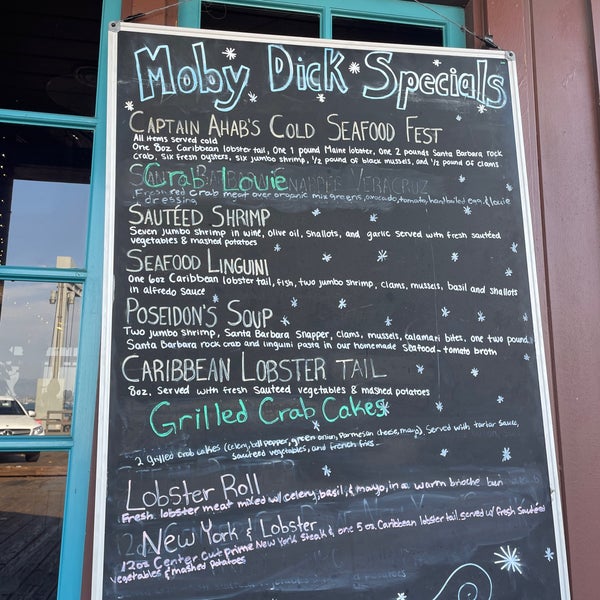 Moby Dick Specials
Captain Ahab's Cold Seafood Fest
All items served cold
One 8oz Caribbean lobster tail, one 1 pound Maine lobster, one 2 pounds Santa Barbara rock
crab, six fresh oysters, six jumbo shrimp, 1/2 pound of black mussels, and 1/2 pound of clams
Crab Louie
Fresh red crab meat over organic mix greens, avocado, tomato, hard boiled egg, & louie
dressing
Sautéed Shrimp
Seven jumbo shrimp in wine, olive oil, shallots, and garlic served with fresh sautéed
vegetables & mashed potatoes
Seafood Linguini
One 6oz Caribbean lobster tail, fish, two jumbo shrimp, clams, mussels, basil and shallots
in alfredo sauce
Poseidon's Soup
Two jumbo shrimp, Santa Barbara Snapper, clams, mussels, calamari bites, one two pound
Santa Barbara rock crab and linguini pasta in our homemade seafood-tomato broth
Caribbean Lobster Tail
8oz, Served with fresh Sauteed vegetables & mashed potatoes
Grilled Crab Cakes
2 grilled crab cakes (celery, bell pepper, green onion, parmesan cheese, mayo). Served with tartar sauce,
sauteed vegetables, and french fries
Lobster Roll
Fresh lobster meat mixed w/ celery, basil, & mayo, in a warm brioche bun
New York & Lobster
12oz Center cut prime New York Steak & one 5 oz. Caribbean lobster tail, served w/ fresh Sautéed
vegetables & mashed potatoes